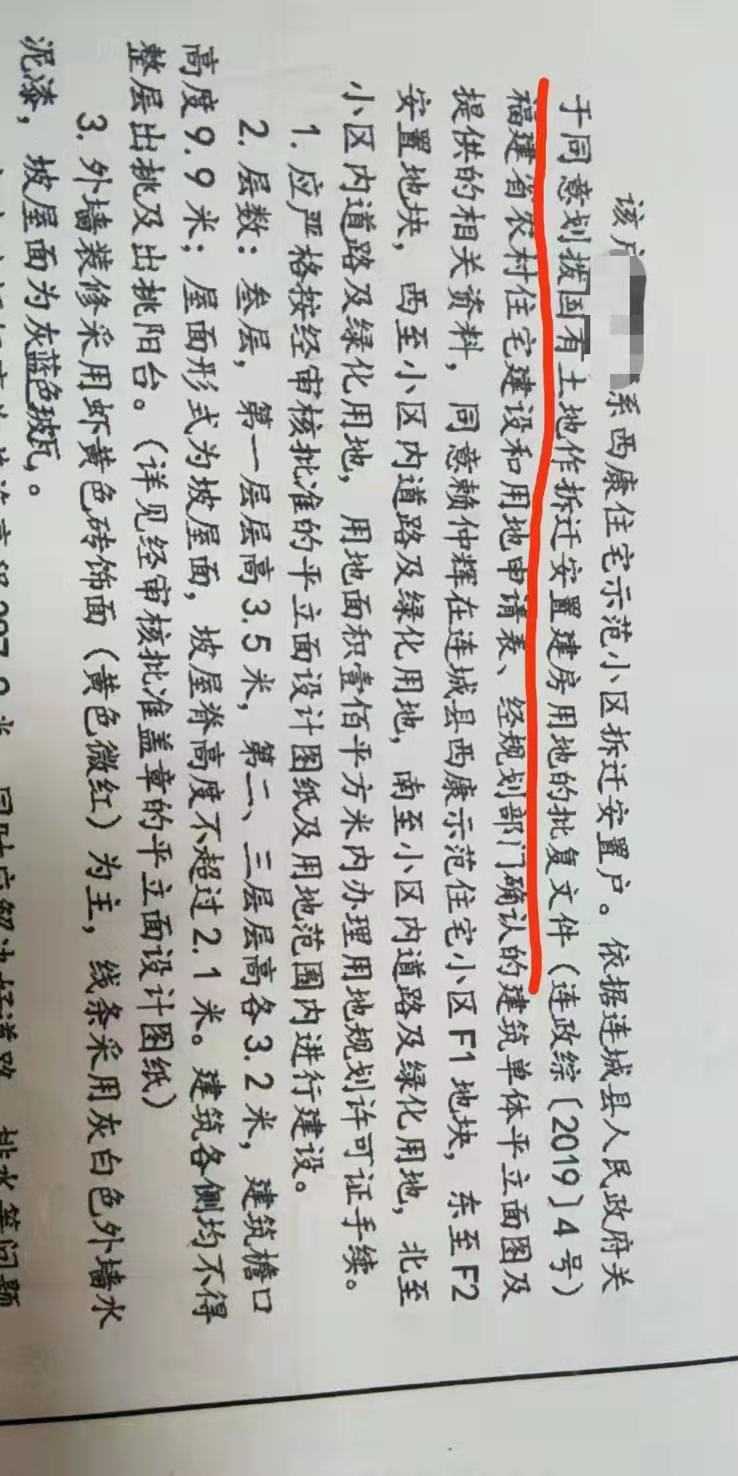 该户 系西康住宅示范小区拆迁安置户。依据连城县人民政府关
于同意划拨国有土地作拆迁安置建房用地的批复文件（连政综〔2019〕4号）
福建省农村住宅建设和用地申请表、经规划部门确认的建筑单体平立面图及
提供的相关资料，同意赖仲辉在连城县西康示范住宅小区F1地块，东至F2
安置地块，西至小区内道路及绿化用地，南至小区内道路及绿化用地，北至
小区内道路及绿化用地，用地面积壹佰平方米内办理用地规划许可证手续。
1. 应严格按经审核批准的平立面设计图纸及用地范围内进行建设。
2. 层数：叁层，第一层层高3.5米，第二、三层层高各3.2米，建筑檐口
高度9.9米；屋面形式为坡屋面，坡屋脊高度不超过2.1米。建筑各侧均不得
整层出挑及出挑阳台。（详见经审核批准盖章的平立面设计图纸）
3. 外墙装修采用虾黄色砖饰面（黄色微红）为主，线条采用灰白色外墙水
泥漆，坡屋面为灰蓝色玻瓦。